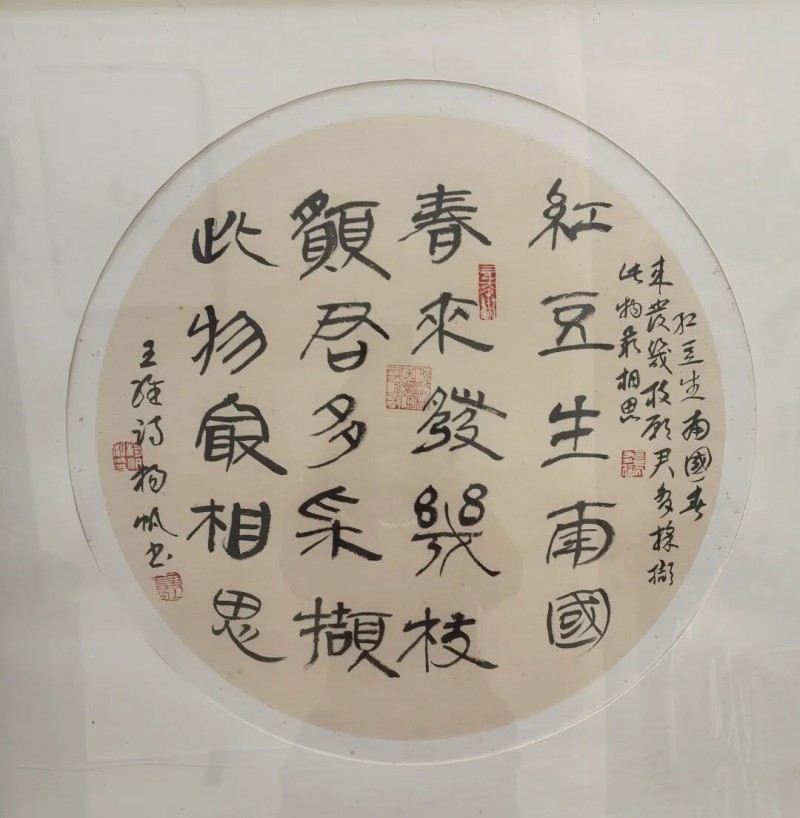 紅豆生南國
春來發幾枝
願君多采擷
此物最相思
红豆生南國春
来发幾枝愿君多採擷
此物最相思
王維诗杨帆书